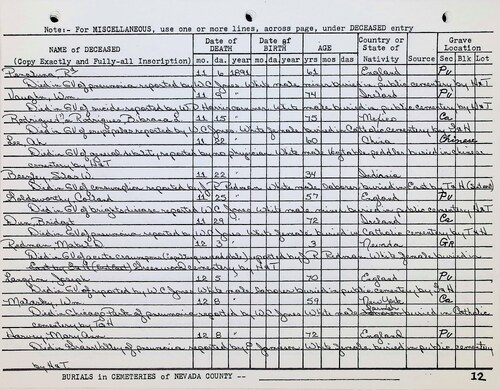 Note:- For MISCELLANEOUS, use one or more lines, across page, under DECEASED entry
NAME of DECEASED
(Copy Exactly and Fully-all Inscription)
Date of DEATH
mo. da. year
Date of BIRTH
mo. da. yr
AGE
yrs mos das
Country or State of Nativity
Source
Grave Location
Sec Blk Lot
Penaluna Rd 11 6 1891 61 England Pu
Died in GV of pneumonia reported by WC Jones White male miner buried in public cemetery by N&T
Vaughn, Wm 11 74 Pu
Died in GV of suicide reported by W Harris White male miner buried in public cemetery by N&T
Rodriguez 11 15 " 75 Mejico Ca
Died in GV of reported by WC Jones White female buried in Catholic cemetery by T&H
Lee, Ah 11 22 " 60 China Chinese
Died in GV of general debility reported by no physician White male Vegetable peddler buried in Chinese
cemetery by N&T
Beegley, Silas W 11 22 " 34 Indiana
Died in GV of consumption reported by J.P. Redman White male laborer buried in East by T&H
Goldsworthy 11 25 " 57 England Pu
Died in GV of brights disease reported by WC Jones White male miner buried in public cemetery N&T
Dun Bridget 11 29 " 72 Ireland Ca
Died in GV reported by WC Jones White female buried in Catholic cemetery by T&H
Redman Mabel D 12 3 " 3 Nevada GR
Died in GV of acute reported by J P Redman White female buried in
Greenwood cemetery by N&T
Langdon Joseph 12 5 " 70 England Pu
Died in GV of reported by WC Jones White male laborer buried in public cemetery by T&H
Malarky, Wm 12 8 " 59 New York Ca
Died in Chicago Park of pneumonia reported by WC Jones White male farmer buried in Catholic
cemetery by T&H
Harvey Mary Ann 12 8 " 72 England Pu
Died in of pneumonia reported by White female buried in public cemetery
by N&T
BURIALS in CEMETERIES OF NEVADA COUNTY -- 12